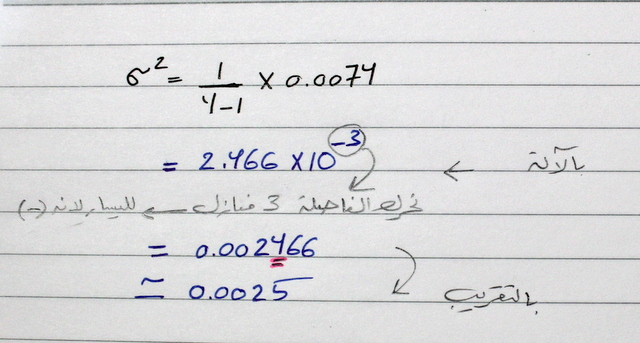 σ² = 1/4-1 × 0.0074
= 2.466 × 10⁻³ ← بالآلة
نحرك الفاصلة 3 منازل ← لليسار لانه (-)
= 0.002466
≃ 0.0025 بالتقريب